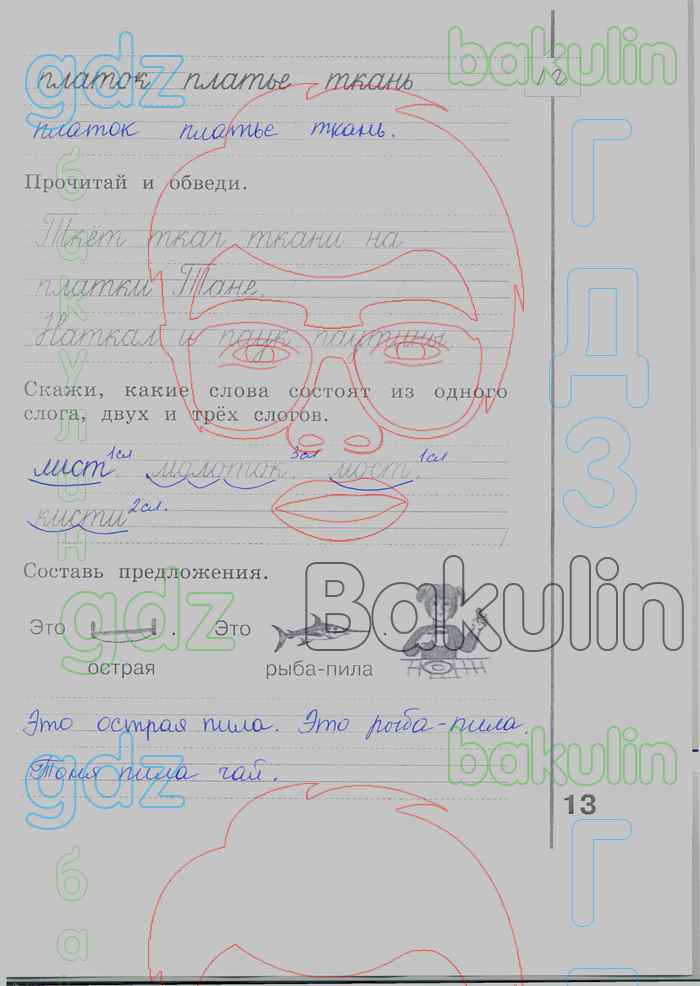 платок платье ткань
платок платье ткань.
Прочитай и обведи.
Ткёт ткач ткани на
платки Тане.
Наткал и паук паутины.
Скажи, какие слова состоят из одного
слога, двух и трёх слогов.
лист. 1сл молоток. 3сл мост. 1сл
кисти 2сл.
Составь предложения.
Это . Это .
острая рыба-пила
Это острая пила. Это рыба-пила.
Таня пила чай.
13
gdz
bakulin
ГДЗ
бакулин
gdz
Bakulin
gdz
bakulin
Г
ба